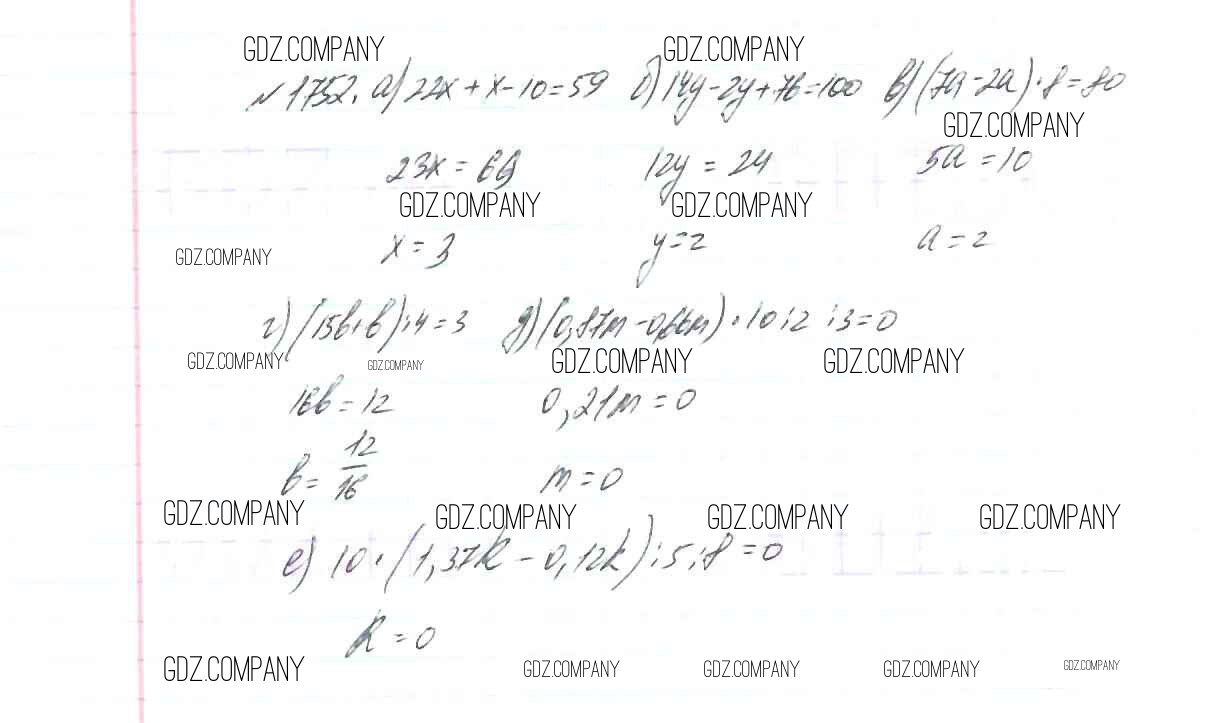 GDZ.COMPANY GDZ.COMPANY
№1752. а) 22x + x - 10 = 59 б) 14y - 2y + 76 = 100 в) (7a - 2a) · 8 = 80
GDZ.COMPANY
23x = 69 12y = 24 5a = 10
GDZ.COMPANY GDZ.COMPANY
GDZ.COMPANY x = 3 y = 2 a = 2
г) (15b + b) : 4 = 3 д) (0,87m - 0,66m) · 10 : 2 : 3 = 0
GDZ.COMPANY GDZ.COMPANY GDZ.COMPANY GDZ.COMPANY
16b = 12 0,21m = 0
b = 12/16 m = 0
GDZ.COMPANY GDZ.COMPANY GDZ.COMPANY GDZ.COMPANY
е) 10 · (1,37k - 0,12k) : 5 : 8 = 0
k = 0
GDZ.COMPANY GDZ.COMPANY GDZ.COMPANY GDZ.COMPANY GDZ.COMPANY